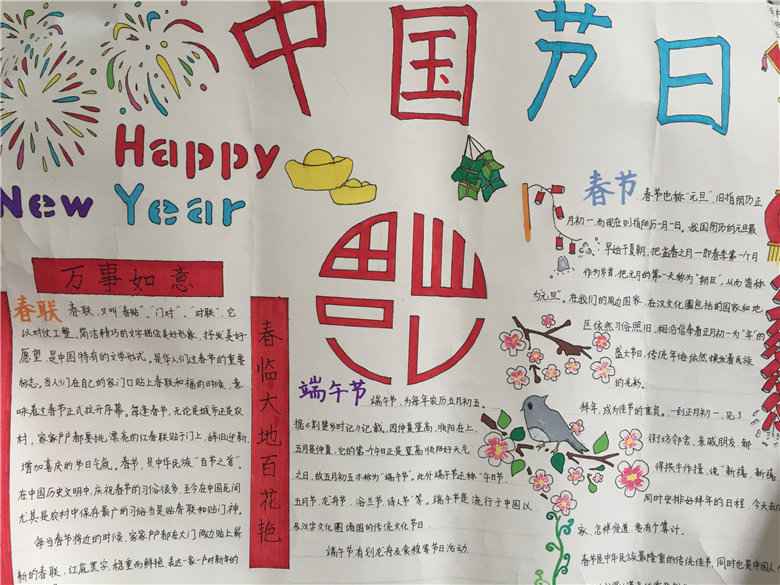 中国节日
Happy
New Year
万事如意
春临大地百花艳
春联
春联,又叫"春贴"、"门对"、"对联",它
以对仗工整、简洁精巧的文字描绘美好形象,抒发美好
愿望,是中国特有的文学形式。是华人们过春节的重要
标志。当人们在自己的家门口贴上春联和福的时候,意
味着过春节正式拉开序幕。每逢春节,无论是城市还是农
村,家家户户都要挑漂亮的红春联贴于门上,辞旧迎新,
增加喜庆的节日气氛。春节,是中华民族"百节之首"。
在中国历史文明中,庆祝春节的习俗很多,至今在中国民间
尤其是农村中保存最广的习俗当是贴春联和贴门神。
每当春节将边的时候,家家户户都在大门两边贴上崭
新的春联,红底黑字,稳重而鲜艳。表达一家一户对新年的
端午节
端午节,为每年农历五月初五。
据《荆楚岁时记》记载,因仲夏登高,顺阳在上,
五月是仲夏,它的第一个午日正是登高顺阳好天气
之日,故五月初五亦称为"端午节"。此外端午节还称"午日节、
五月节、龙舟节、浴兰节、诗人节"等。端午节是流行于中国以
及汉字文化圈诸国的传统文化节日
端午节有划龙舟及食粽等节日活动.
春节
春节也称"元旦",旧指阴历正
月初一,而现在则指阳历一月一日。我国阴历的元旦最
早始于夏朝,把孟春之月一即春季第一个月
作为岁首,把元月的第一天称为"朔旦",从而
为元旦"。在我们的周边国家,在汉文化圈包括的国家和地
区依然习俗照旧,相沿信奉着正月初一为"年"的
盛大节日,传统年俗依然
的光彩。
拜年,成为佳节的重负。一到正月初一,见了
街坊邻舍、亲戚朋友,都
得拱手作揖,道"新禧、新禧
同时安排好拜年的日程,今天去
家,怎样慢道,卷有个算计。
春节是中华民族最隆重的传统佳节,同时也是中国人